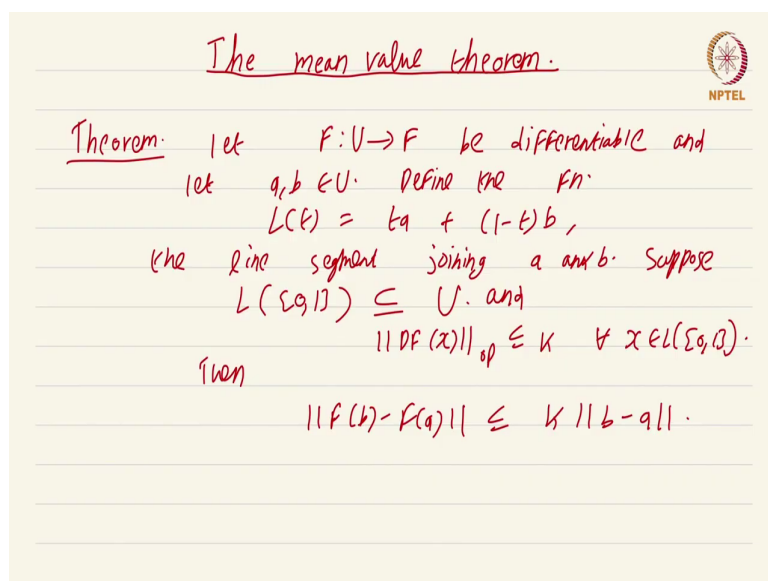 The mean value theorem.
NPTEL
Theorem. let F : U → F be differentiable and
let a, b ∈ U. Define the fn.
L(t) = ta + (1-t) b,
the line segment joining a and b. Suppose
L([0,1]) ⊆ U. and
||DF(x)||op ≤ K ∀ x ∈ L([0,1]).
Then
||F(b) - F(a)|| ≤ K ||b - a||.